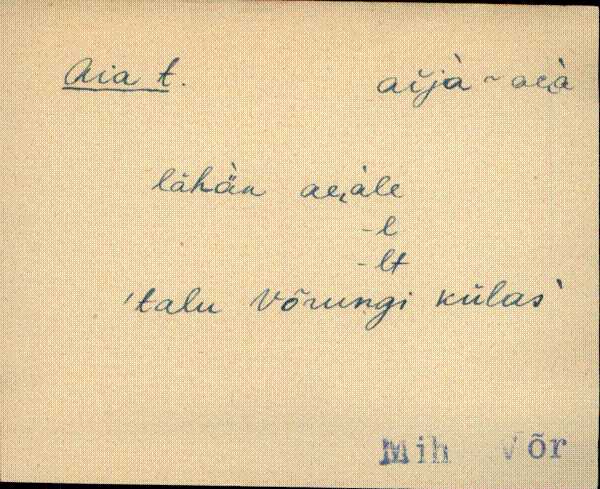 Aia t. aĭjà ~ ae̯à
lähän ae̯àle
-l
-lt
'talu Võrungi külas'
Mih Võr